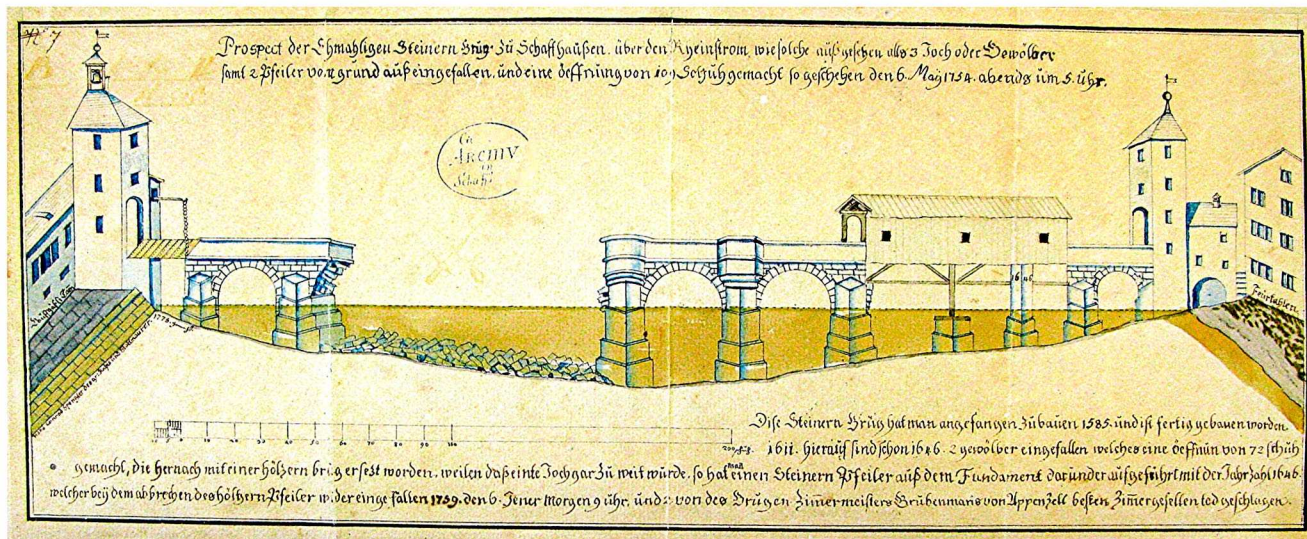 Nº 7
Prospect der Ehmahligen Steinern Brug zu Schaffhaußen, über den Rheinstrom, wie solche auß gesehen alls 3 Joch oder Gewölber
samt 2 Pfeiler von grund auß eingefallen, und eine öeffnung von 109 Schüh gemacht so geschehen den 6. Maÿ 1754. abends üm 5. uhr.
ARCHIV
Schaff
1646
Feurtahlen
10 5
10 20 30 40 50 60 70 80 90 100
Dise Steinern Brüg hat man angefangen zu bauen 1585. und ist fertig gebauen worden
1611. hierauf sind schon 1646. 2 gewölber eingefallen welches eine öeffnun von 72 schüh
gemacht, die hernach mit einer hölzern brüg ersezt worden, weilen daß einte Joch gar zu weit würde, so hat man einen Steinern Pfeiler auß dem Fundament darunder aufgeführt mit der Jahrzahl 1646.
welcher beÿ dem abbrechen des höltzern Pfeiler wider eingefallen 1759. den 6. Jener Morgen 9 uhr, und 2 von des Brügen Zim̄ermeisters Grubenmans von Appenzell besten Zim̄ergesellen tod geschlagen.